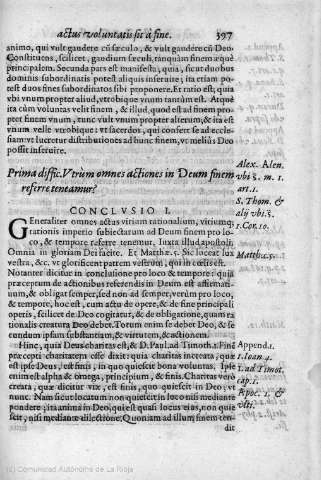 actus voluntatis sit à fine. 397
animo, qui vult gaudere cũ sæculo, & vult gaudere cũ Deo
Constitutos, scilicet, gaudium sæculi, tanquàm finem æquè
principalem. Secunda pars est manifesta, quia, sicut duobus
dominis subordinatis potest aliquis inseruire; ita etiam po-
test duos fines subordinatos sibi proponere. Et ratio est; quia
vbi vnum propter aliud, vtrobique vnum tantùm est. Atque
ita cùm voluntas velit finem, & illud, quod est ad finem pro-
pter finem vnum, tunc vult vnum propter alterum, & ita est
vnum velle vtrobique: vt sacerdos, qui confert se ad eccle-
siam, vt lucretur distributiones ad hunc finem, vt melius Deo
possit inseruire.
Prima diffic. Vtrùm omnes actiones in Deum finem
referre teneamur?
Alex. Alen.
vbi s. m. 1.
art. 1.
S. Thom. &
alij vbi s.
1. Cor. 10.
CONCLVSIO I.
Generaliter omnes actus virium rationalium, viriumq;
rationis imperio subiectarum ad Deum finem pro lo-
co, & tempore referre tenemur. Iuxta illud apostoli:
Omnia in gloriam Dei facite. Et Matthæ. 5. Sic luceat lux
Matthæ. 5.
vestra, &c. vt glorificent patrem vestrum, qui in cœlis est.
Notanter dicitur in conclusione pro loco & tempore: quia
præceptum de actionibus referendis in Deum est affirmati-
uum, & obligat semper, sed non ad semper, verùm pro loco,
& tempore, hoc est, cum actu de opere, & de fine principali
operis, scilicet de Deo cogitatur, & de obligatione, quam ra
tionalis creatura Deo debet. Totum enim se debet Deo, & se
cundum ipsam substantiam, & virtutem, & actionem.
Hinc, quia Deus charitas est, & D. Paul. ad Timoth. 1. Finẽ
præcepti charitatem esse dixit: quia charitas increata, quæ
est ipse Deus, est finis, in quo quiescit bona voluntas. Ipse
enim est alpha & omega, principium, & finis. Charitas verò
creata, quæ dicitur via, est finis, quo quiescit in Deo; vt
nunc. Nam sicut locatum non quiescit in loco nisi mediante
pondere, ita anima in Deo, qui est quasi locus eius, non quie
scit, nisi mediante dilectione. Quoniam ad illum finem ten-
dit
Append. 1.
1. Ioan. 4.
1. ad Timot.
cap. 1.
Apoc. 1. &
vlti.
(c) Comunidad Autónoma de La Rioja